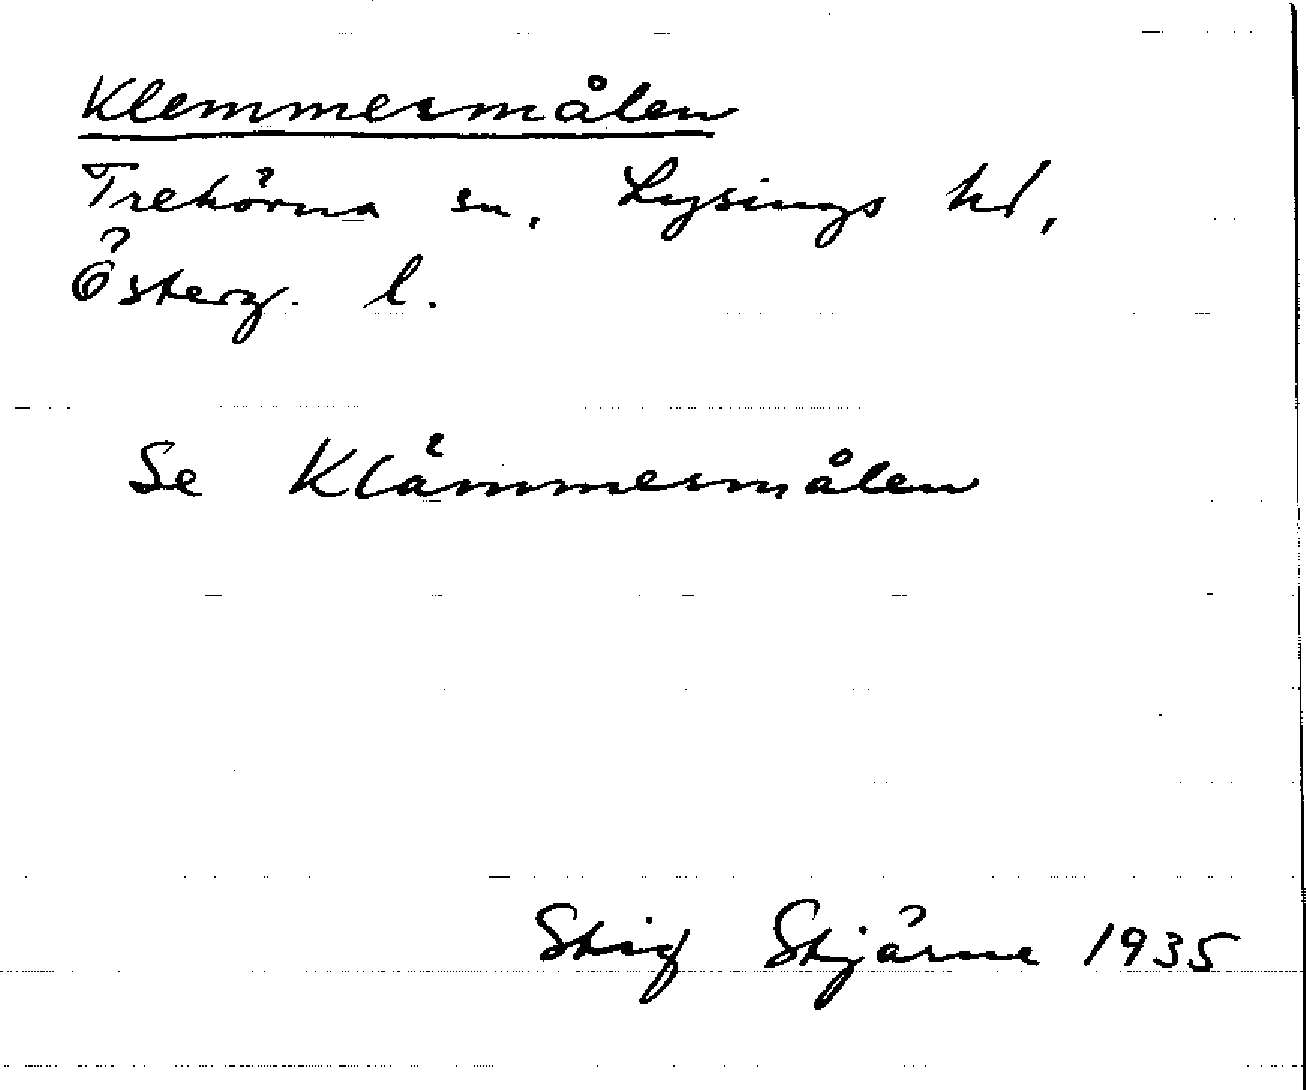 Klemmesmålen
Trehörna sn, Lysings hd,
Österg. l.
Se Klämmesmålen
Stig Stjärne 1935